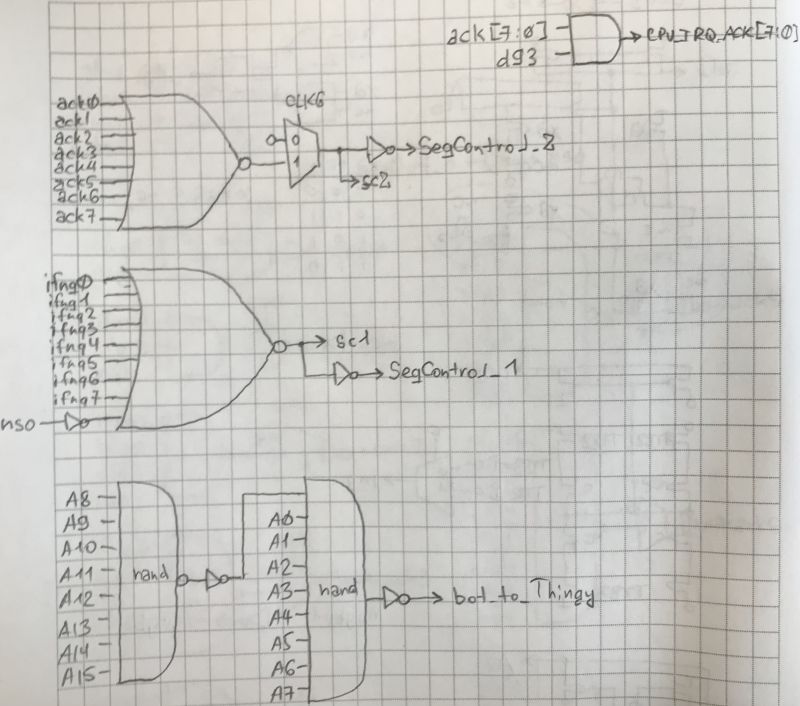 ack[7:0]
d93
CPU_IRQ_ACK[7:0]
CLK6
ack0
ack1
ack2
ack3
ack4
ack5
ack6
ack7
0
1
SegControl_2
sc2
ifng0
ifng1
ifng2
ifng3
ifng4
ifng5
ifng6
ifng7
nso
sc1
SegControl_1
A8
A9
A10
A11
A12
A13
A14
A15
nand
A0
A1
A2
A3
A4
A5
A6
A7
nand
bot_to_Thingy